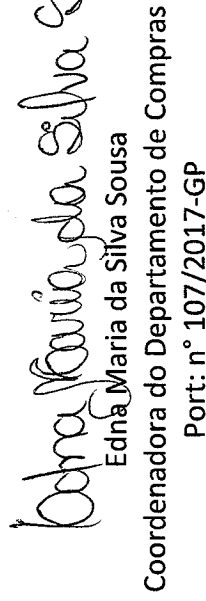 Edna Maria da Silva S
Edna Maria da Silva Sousa
Coordenadora do Departamento de Compras
Port: n° 107/2017-GP